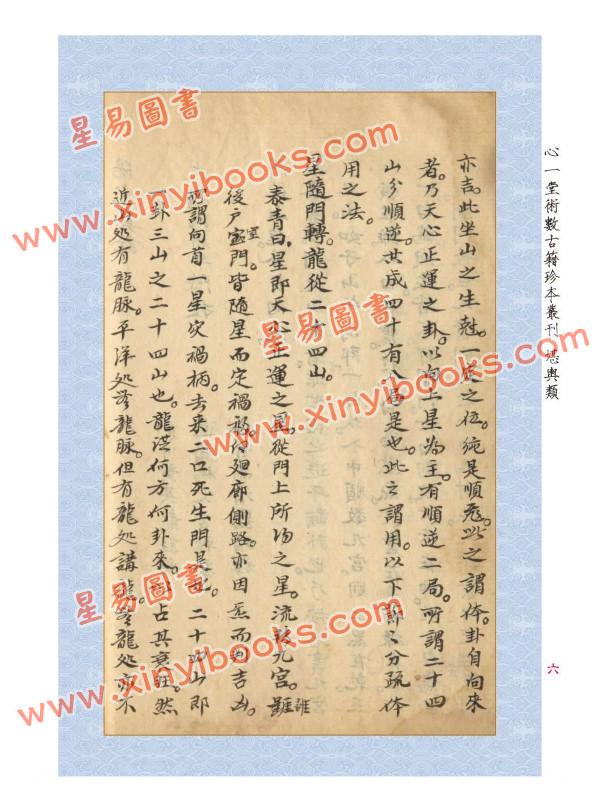 心一堂術數古籍珍本叢刊 堪輿類
六
亦吉。此坐山之生尅。之位。純是順飛。此之謂体。卦自向來
者。乃天心正運之卦。以向上星為主。有順逆二局。所謂二十四
山分順逆。共成四十有八局是也。此之謂用。以下分疏体
用之法。
星隨門轉。龍從二十四山。
泰青曰。星即天心正運之星。從門上所得之星。流敍九宮。雖
後户室門。皆隨星而定禍福。迴廊側路。亦因炁而判吉凶。
所謂向首一星灾禍柄。去來二口死生門是也。二十四山即
卦三山之二十四山也。龍從何方何卦來。占其衰旺。然
近山处有龍脉。平洋处無龍脉。但有龍处講龍。無龍处亦不
星易圖書
www.xinyibooks.com
星易圖書
www.xinyibooks.com
星易圖書
www.xinyibooks.com